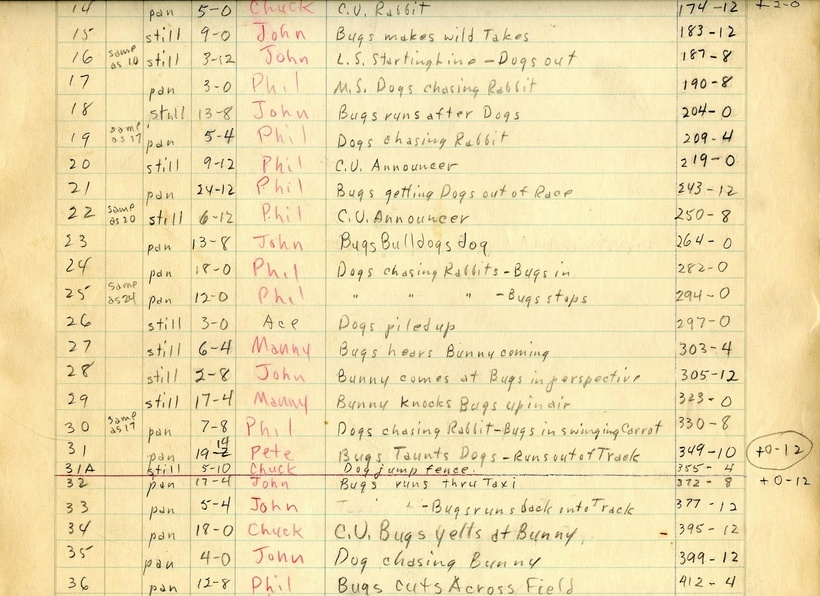 14 pan 5-0 Chuck C.U. Rabbit 174-12 +2-0
15 still 9-0 John Bugs makes wild Takes 183-12
16 same as 10 still 3-12 John L.S. Starting Line - Dogs out 187-8
17 pan 3-0 Phil M.S. Dogs chasing Rabbit 190-8
18 still 13-8 John Bugs runs after Dogs 204-0
19 same as 17 pan 5-4 Phil Dogs chasing Rabbit 209-4
20 still 9-12 Phil C.U. Announcer 219-0
21 pan 24-12 Phil Bugs getting Dogs out of Race 243-12
22 same as 20 still 6-12 Phil C.U. Announcer 250-8
23 pan 13-8 John Bugs Bulldogs dog 264-0
24 pan 18-0 Phil Dogs chasing Rabbits - Bugs in 282-0
25 same as 24 pan 12-0 Phil " " " - Bugs stops 294-0
26 still 3-0 Ace Dogs piled up 297-0
27 still 6-4 Manny Bugs hears Bunny coming 303-4
28 still 2-8 John Bunny comes at Bugs in perspective 305-12
29 still 17-4 Manny Bunny knocks Bugs up in air 323-0
30 same as 17 pan 7-8 Phil Dogs chasing Rabbit - Bugs in swinging Carrot 330-8
31 pan 19-2 14 Pete Bugs Taunts Dogs - Runs out of Track 349-10 +0-12
31A still 5-10 Chuck Dog jump fence. 355-4
32 pan 17-4 John Bugs runs thru Taxi 372-8 +0-12
33 pan 5-4 John " - Bugs runs back into Track 377-12
34 pan 18-0 Chuck C.U. Bugs yells at Bunny 395-12
35 pan 4-0 John Dog chasing Bunny 399-12
36 pan 12-8 Phil Bugs cuts Across Field 412-4